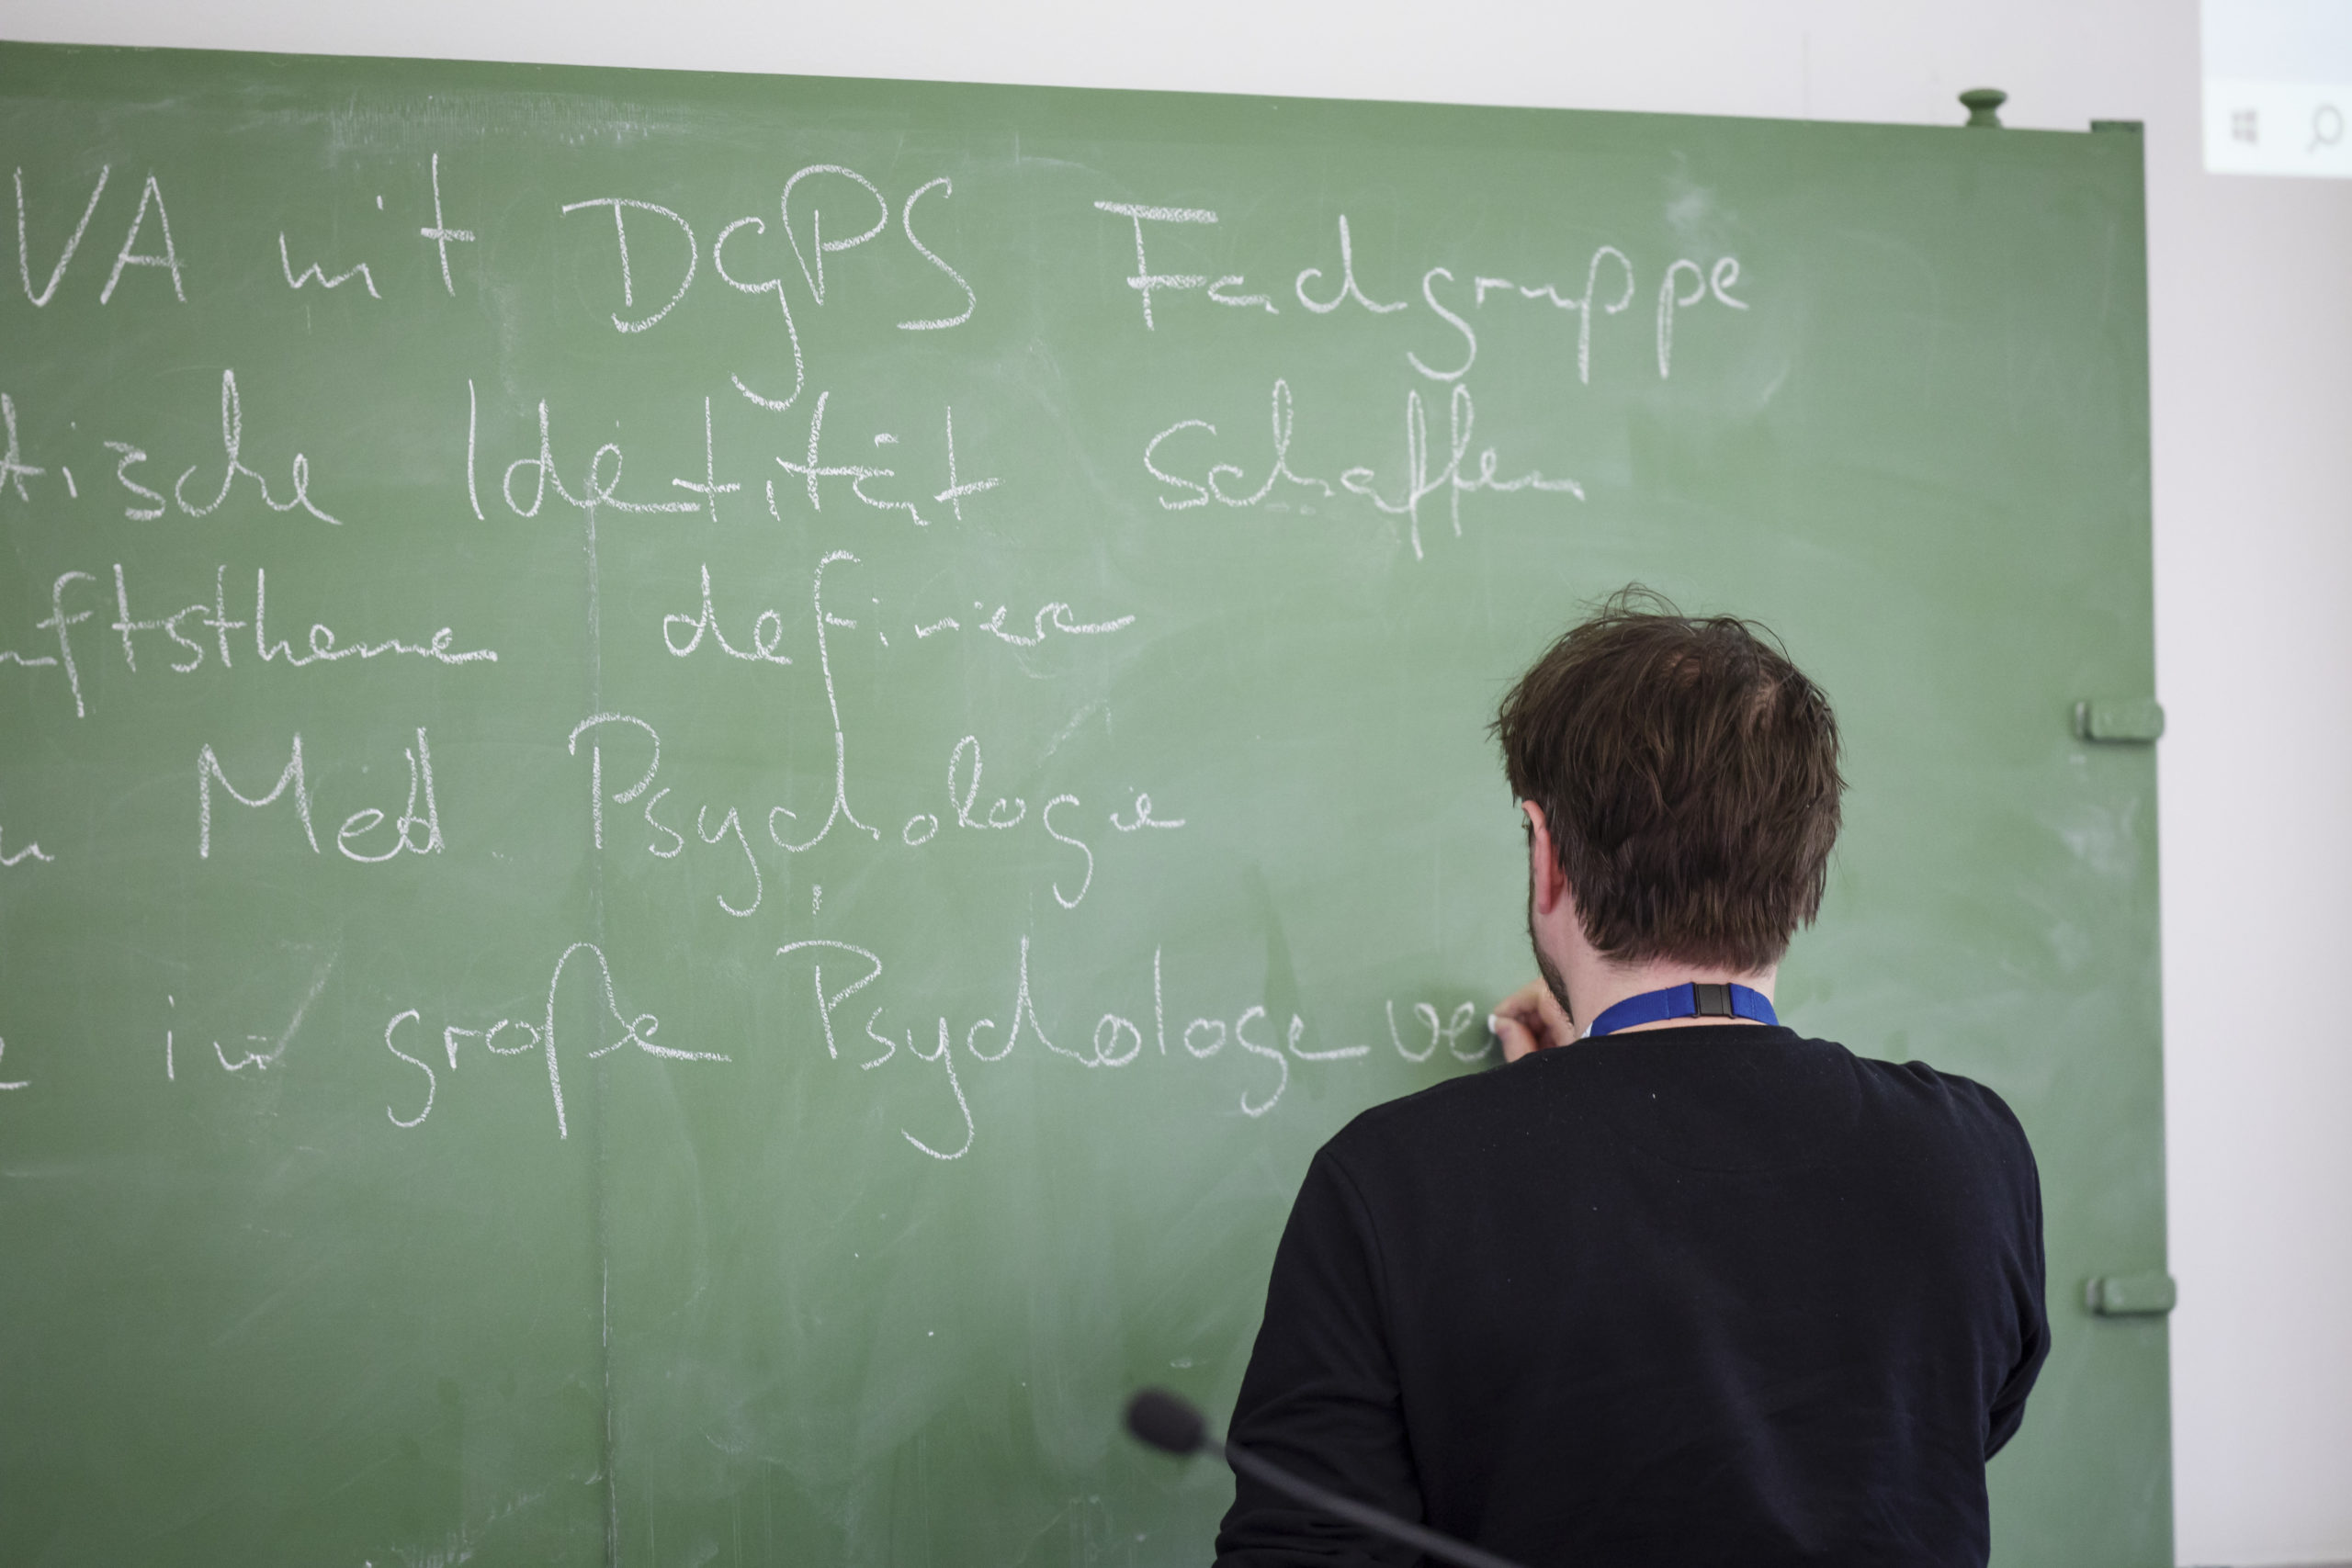 VA mit DGPS Fachgruppe
tische Identität schaffen
nftstheme definieren
Med Psychologie
in große Psychologe ve